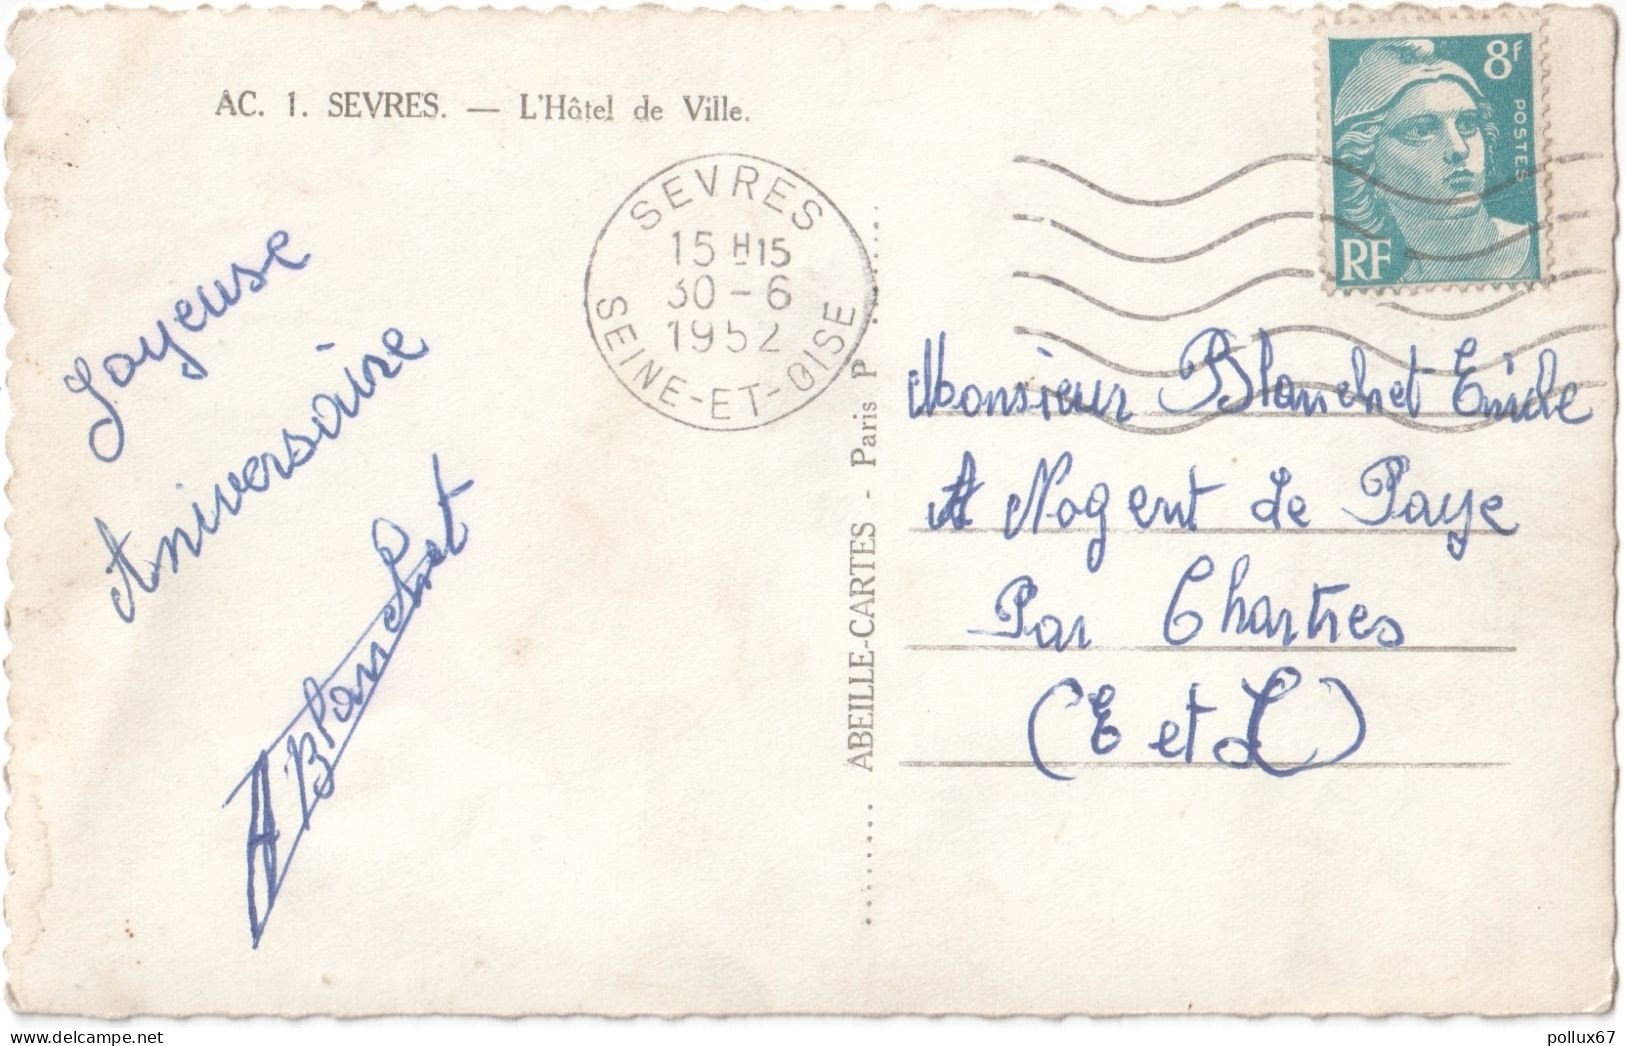 AC. 1. SEVRES. — L'Hôtel de Ville.
8F
POSTES
RF
SEVRES
15 H15
30 - 6
1952
SEINE-ET-OISE
Joyeuse
Aniversaire
A Blanchet
ABEILLE-CARTES - Paris P
Monsieur Blanchet Emile
A Nogent Le Paye
Par Chartres
(E et L)
Delcampe.net
pollux67